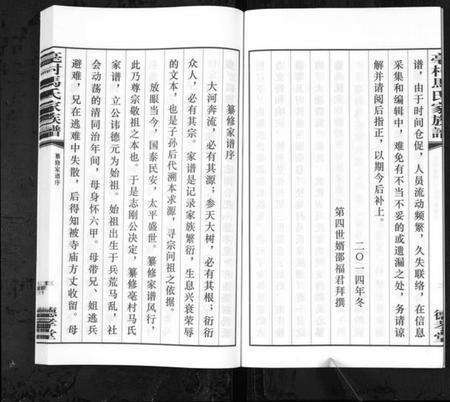 亳村馬氏家族譜
谱，由于时间仓促，人员流动频繁，久失联络，在信息
采集和编辑中，难免有不当不妥的或遗漏之处，务请谅
解并请阅后指正，以期今后补上。
二〇一四年冬
第四世婿邵福君拜撰
德孝堂
纂修家谱序
大河奔流，必有其源；参天大树，必有其根；衍衍
众人，必有其宗。家谱是记录家族繁衍，生息兴衰荣辱
的文本，也是子孙后代溯本求源，寻宗问祖之依据。
放眼当今，国泰民安，太平盛世。纂修家谱风行，
此乃尊宗敬祖之本也。于是志刚公决定，纂修亳村马氏
家谱，立公讳德元为始祖。始祖出生于兵荒马乱，社
会动荡的清同治年间，母身怀六甲。母带兄、姐逃兵
避难，兄在逃难中失散，后得知被寺庙方丈收留。母
亳村馬氏家族譜
纂修家谱序
德孝堂